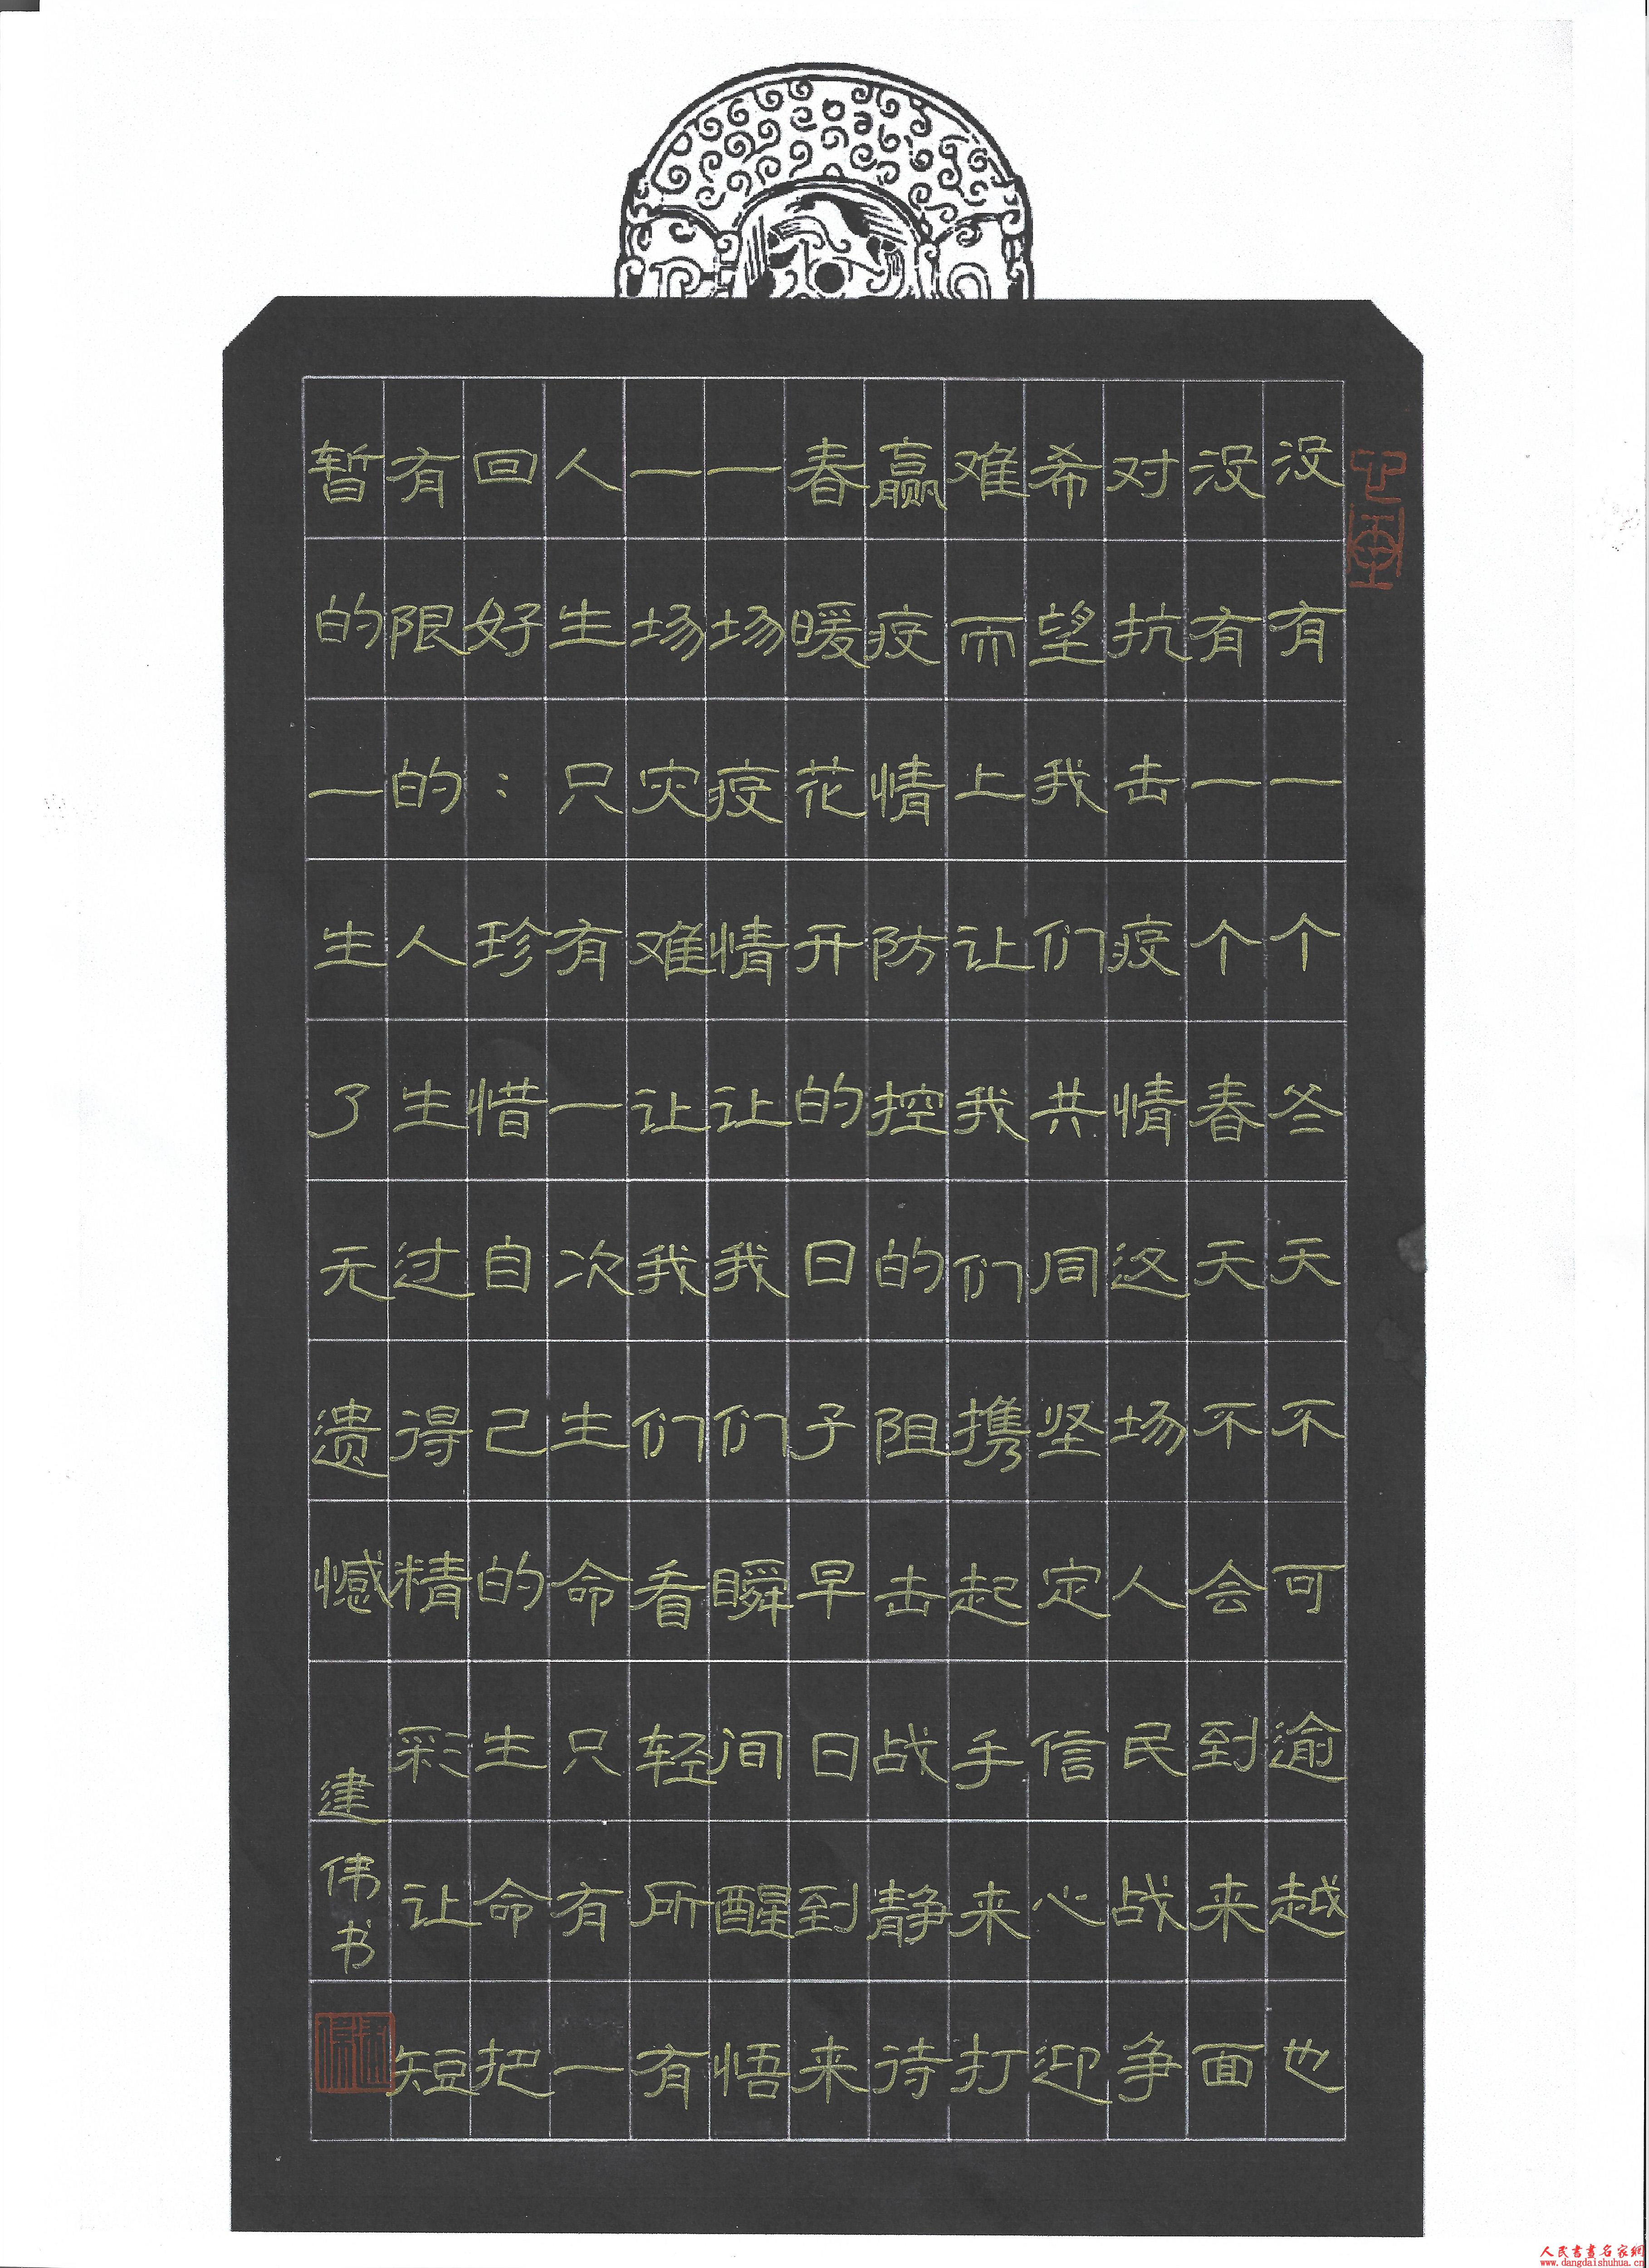 没有一个冬天不可逾越也
没有一个春天不会到来面
对抗击疫情这场人民战争
希望我们共同坚定信心迎
难而上让我们携起手来打
赢疫情防控的阻击战静待
春暖花开的日子早日到来
一场疫情让我们瞬间醒悟
一场灾难让我们看轻所有
人生只有一次生命只有一
回好：珍惜自己的生命把
有限的人生过得精彩让短
暂的一生了无遗憾
建伟书
人民书画名家网
www.dangdaishuhua.cn